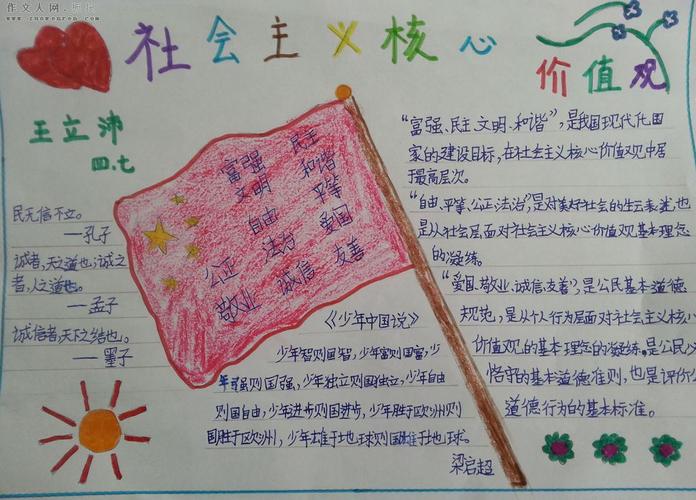 作文人网
www.zuowenren.com
社会主义核心
价值观
王立沛
四.七
民无信不立。
——孔子
诚者,天之道也;诚之
者,人之道也。
——孟子
诚信者天下之结也。
——墨子
富强 民主
文明 和谐
自由 平等
法治 爱国
公正 诚信 友善
敬业
“富强、民主、文明、和谐”,是我国现代化国
家的建设目标,在社会主义核心价值观中居
于最高层次。
“自由、平等、公正、法治”,是对美好社会的生云表述,也
是从社会层面对社会主义核心价值观基本理念
的凝练。
“爱国、敬业、诚信、友善”,是公民基本道德
规范,是从个人行为层面对社会主义核心
价值观的基本理念的凝练。是公民必
恪守的基本道德准则,也是评价公
道德行为的基本标准。
《少年中国说》
少年智则国智,少年富则国富,少
年强则国强,少年独立则国独立,少年自由
则国自由,少年进步则国进步,少年胜于欧洲则
国胜于欧洲,少年雄于地球则国雄于地球。
梁启超